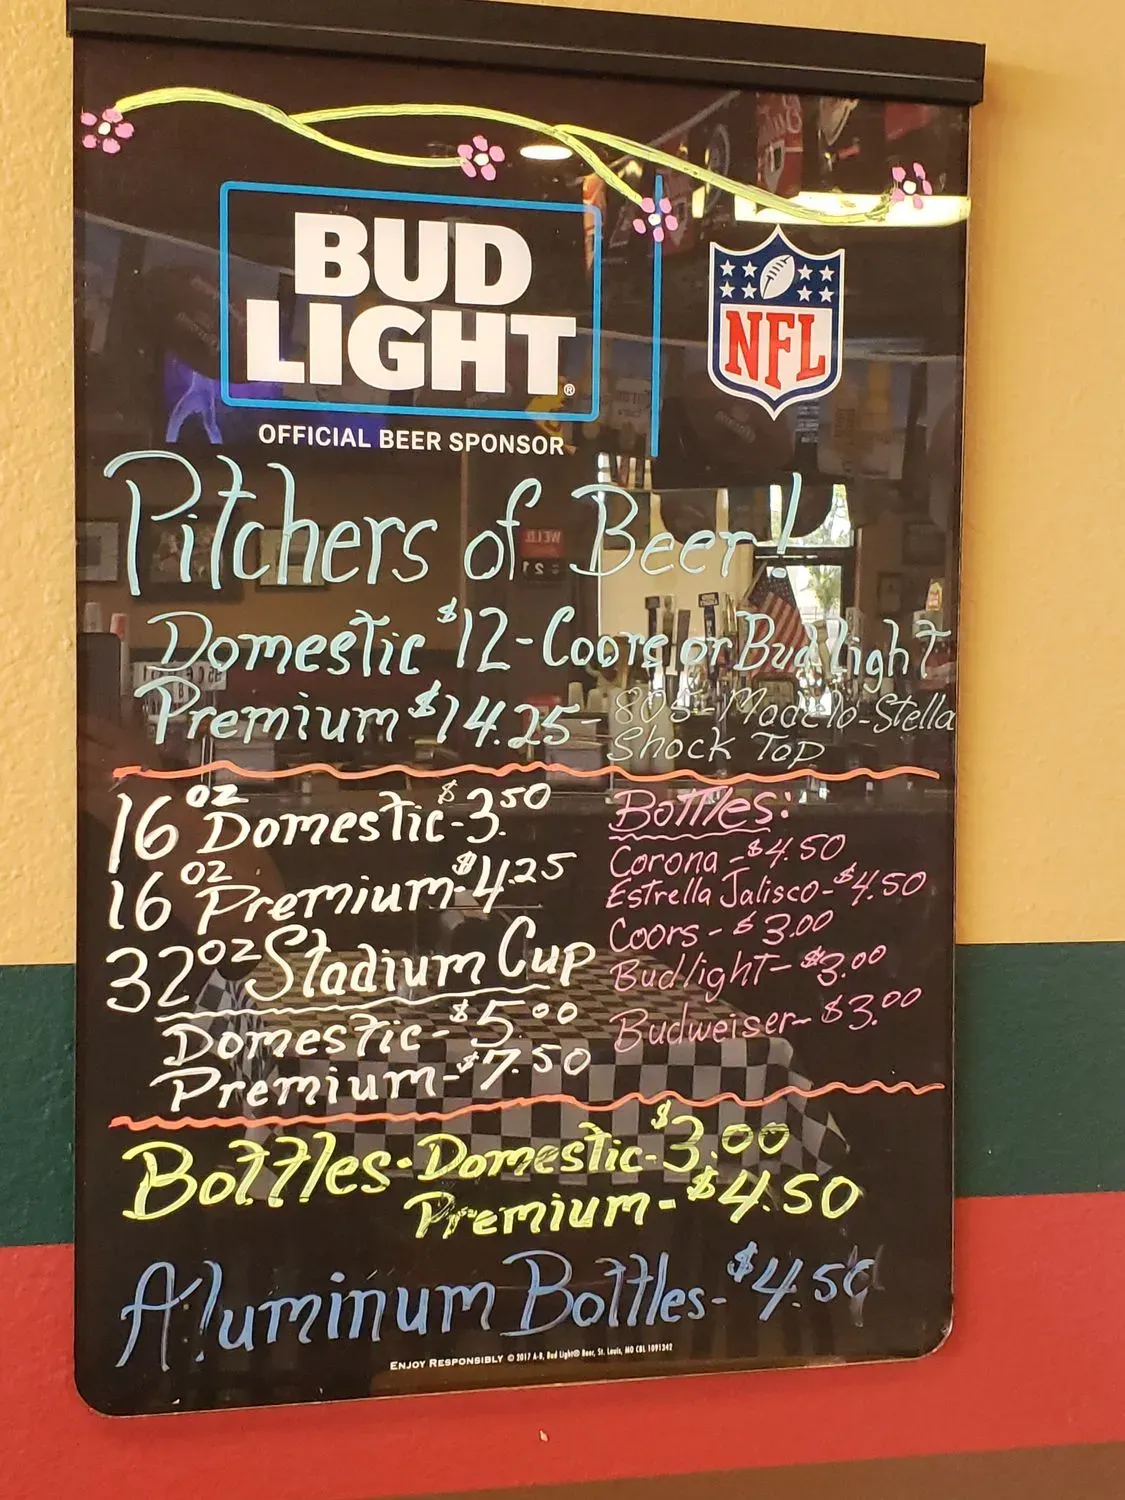 BUD
LIGHT®
OFFICIAL BEER SPONSOR
NFL
Pitchers of Beer!
Domestic $12-Coors or Budlight
Premium $14.25- 805-Modelo-Stella
Shock Top
16oz Domestic-$3.50
16oz Premium-$4.25
32oz Stadium Cup
Domestic-$5.00
Premium-$7.50
Bottles:
Corona-$4.50
Estrella Jalisco-$4.50
Coors-$3.00
Budlight-$3.00
Budweiser-$3.00
Bottles-Domestic-$3.00
Premium-$4.50
Aluminum Bottles-$4.50
ENJOY RESPONSIBLY © 2017 A-B, Bud Light® Beer, St. Louis, MO CBL 1091342